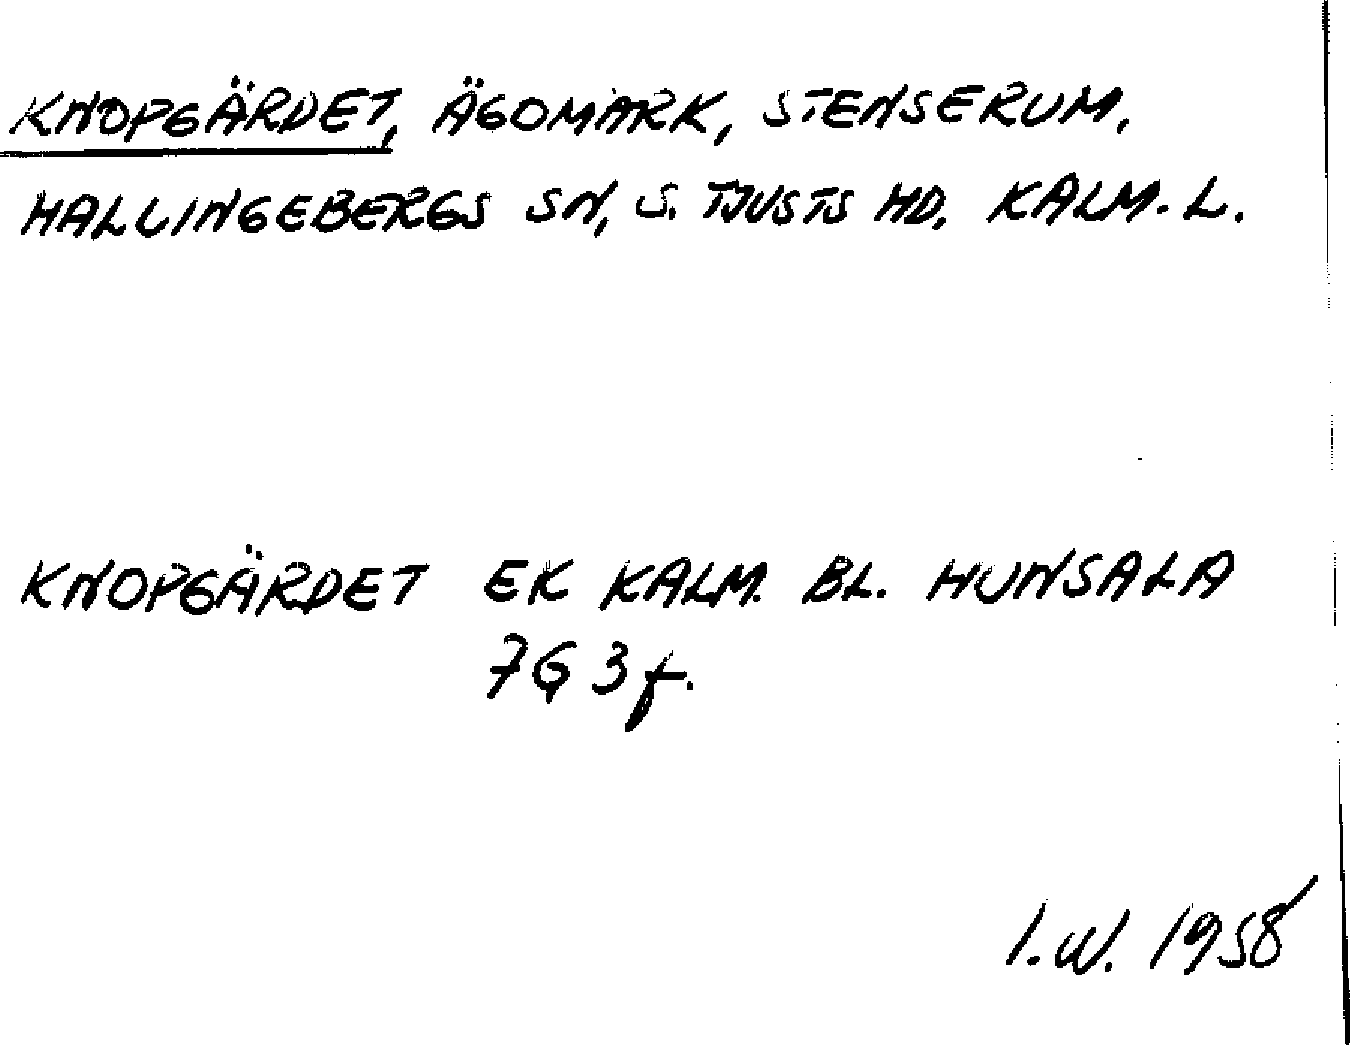 KNOPGÄRDET, ÄGOMARK, STENSERUM,
HALLINGEBERGS SN, S. TJUSTS HD, KALM. L.
KNOPGÄRDET EK KALM. BL. HUNSALA
7G 3f.
I.W. 1958